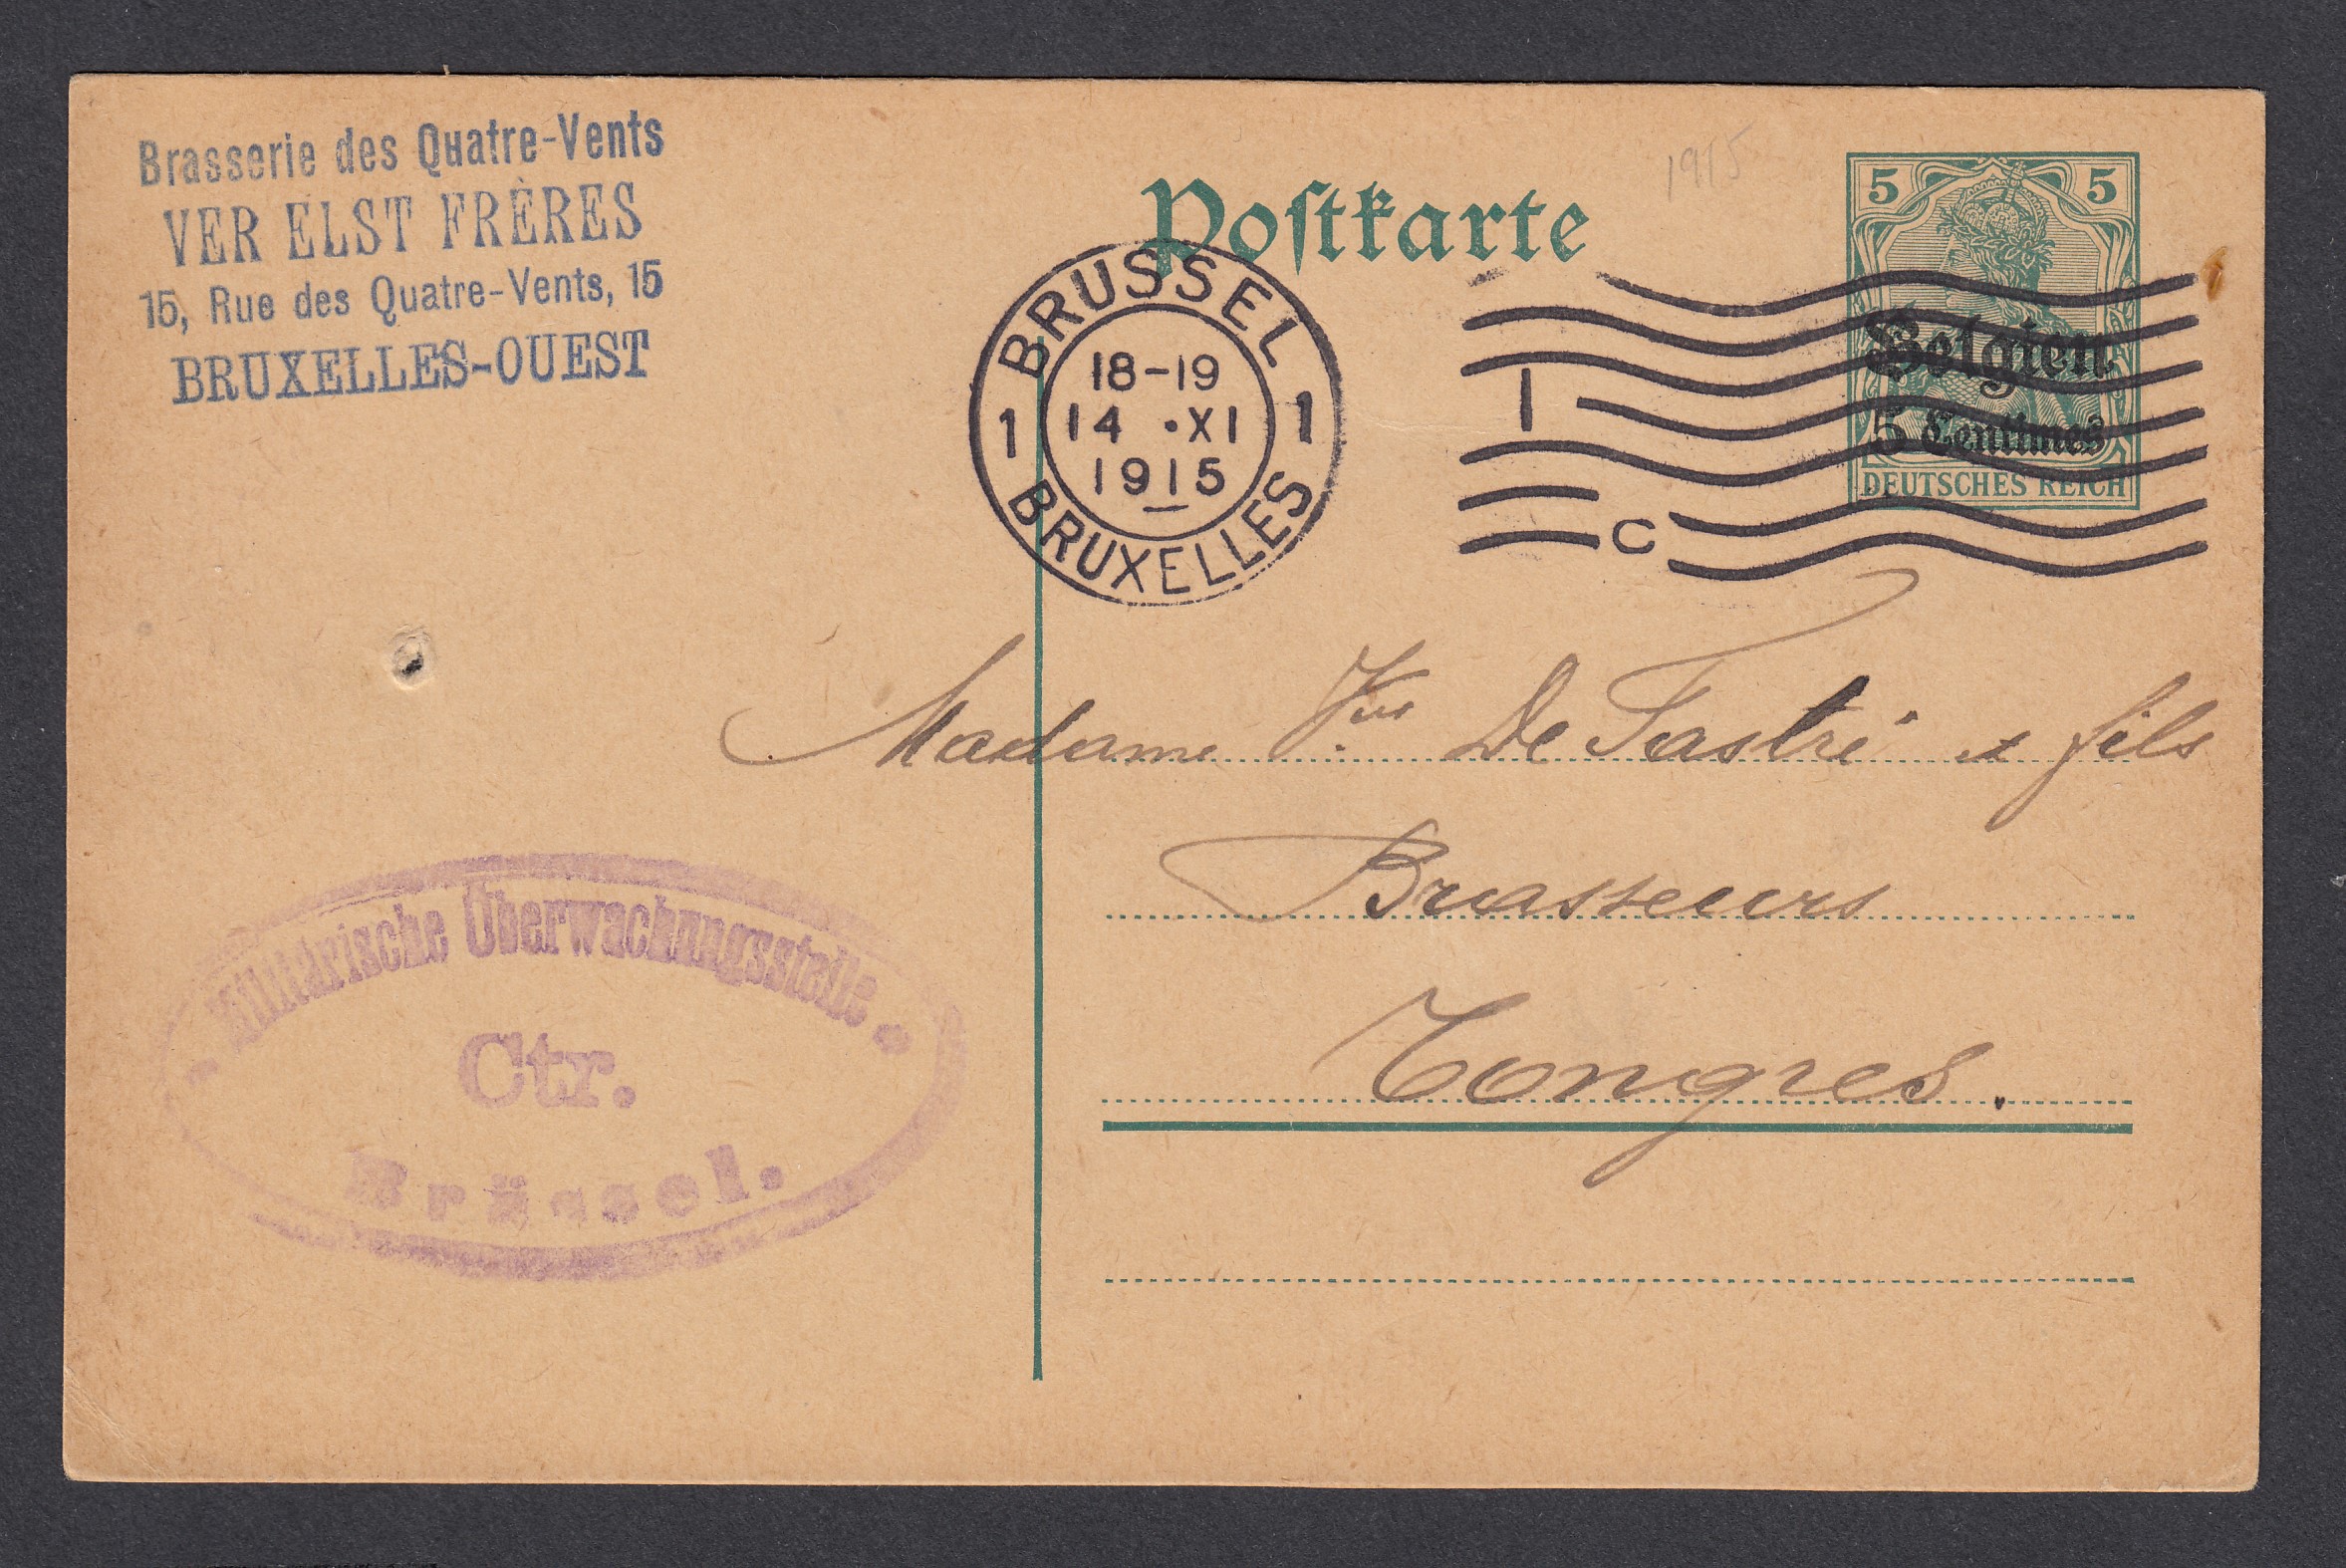 Brasserie des Quatre-Vents
VER ELST FRÈRES
15, Rue des Quatre-Vents, 15
BRUXELLES-OUEST
1915
Postkarte
5 5
Belgien
5 Centimes
DEUTSCHES REICH
BRUSSEL
18-19
1 14 •XI 1
1915
BRUXELLES
1
C
Madame Vve De Tastré & fils
Brasseurs
Tongres.
Militärische Überwachungsstelle
Ctr.
Brüssel.